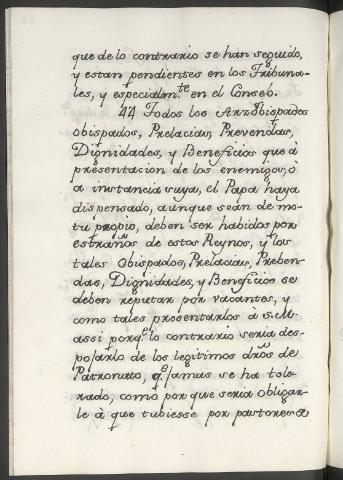 que de lo contrario se han seguido,
y estan pendientes en los Tribuna-
les, y especialm.te en el Consejo.
44 Todos los Arzobispados
obispados, Prelacias, Prevendas,
Dignidades, y Beneficios que à
presentacion de los enemigos, ò
a instancia suya, el Papa haya
dispensado, aunque seán de mo-
tu proprio, deben ser habidos por
estraños de estos Reynos, y los
tales Obispados, Prelacias, Preben-
das, Dignidades, y Beneficios se
deben reputar por vacantes, y
como tales presentarlos à S. M.
assi porq.e lo contrario seria des-
pojarlo de los legitimos dros de
Patronato, q.e jamas se ha tole-
rado, como por que seria obligar-
le à que tubiesse por pastores a